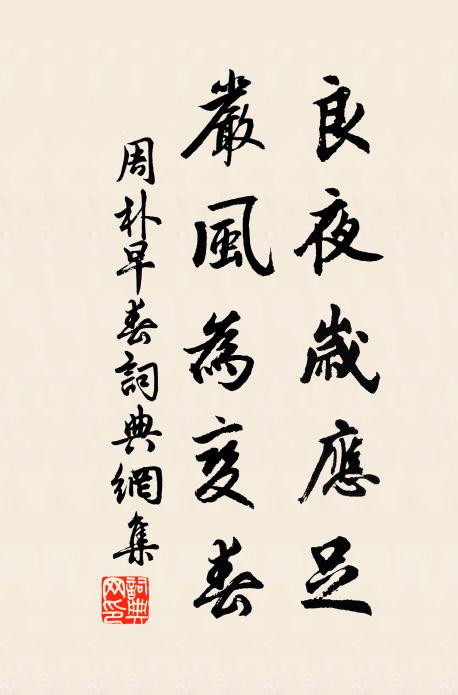 良夜歲應足
嚴風為變春
周朴早春詞典網集
詞典網印